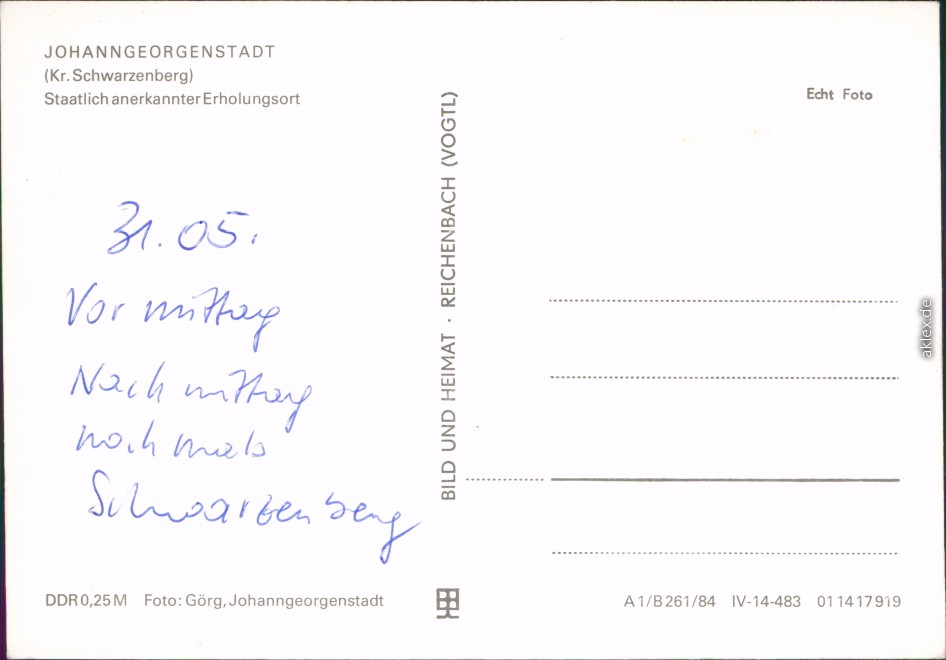 JOHANNGEORGENSTADT
(Kr. Schwarzenberg)
Staatlich anerkannter Erholungsort
31. 05.
Vormittag
Nachmittag
nochmals
Schwarzenberg
DDR 0,25 M Foto: Görg, Johanngeorgenstadt
BILD UND HEIMAT · REICHENBACH (VOGTL)
Echt Foto
A 1/B 261/84 IV-14-483 01 14 17 919
aklex.de